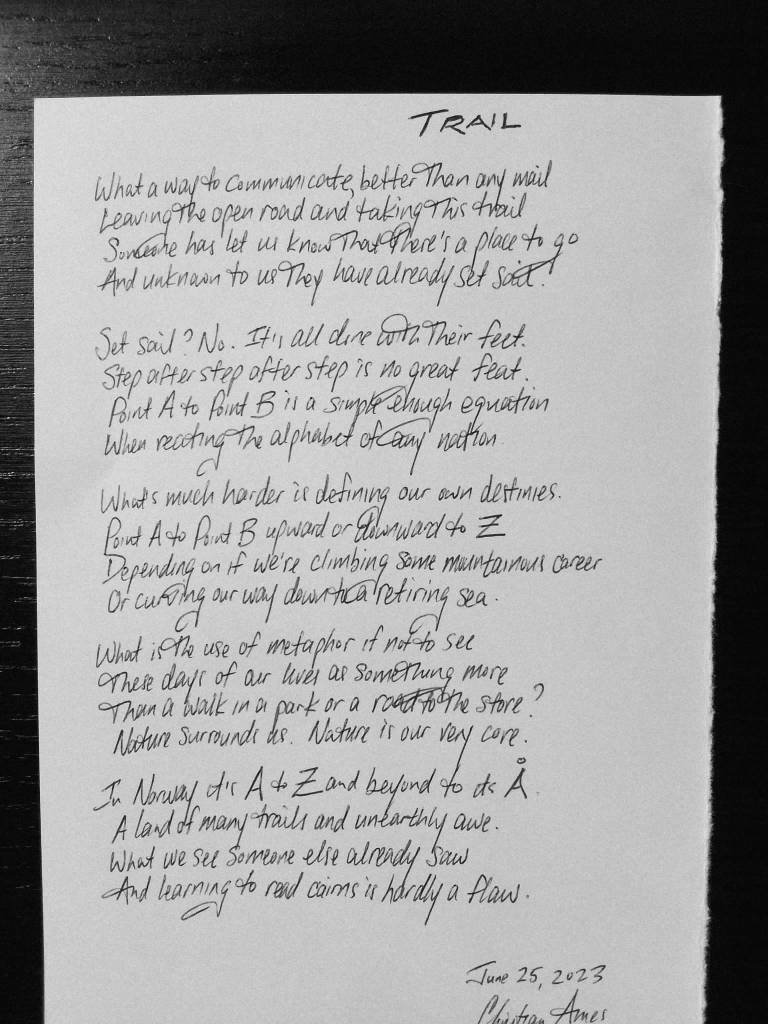 TRAIL
What a way to communicate, better than any mail
Leaving the open road and taking this trail
Someone has let us know that there's a place to go
And unknown to us they have already set sail.
Set sail? No. It's all done with their feet.
Step after step after step is no great feat.
Point A to Point B is a simple enough equation
When reciting the alphabet of any nation.
What's much harder is defining our own destinies.
Point A to Point B upward or downward to Z
Depending on if we're climbing some mountainous career
Or curving our way down to a retiring sea.
What is the use of metaphor if not to see
These days of our lives as something more
Than a walk in a park or a road to the store?
Nature surrounds us. Nature is our very core.
In Norway it's A to Z and beyond to its Å.
A land of many trails and unearthly awe.
What we see someone else already saw
And learning to read cairns is hardly a flaw.
June 25, 2023
Christian Ames